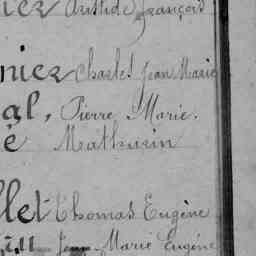 nier Aristide françois
nier Charles Jean Marie
al, Pierre Marie.
é Mathurin
llet Thomas Eugène
Jean Marie Eugène